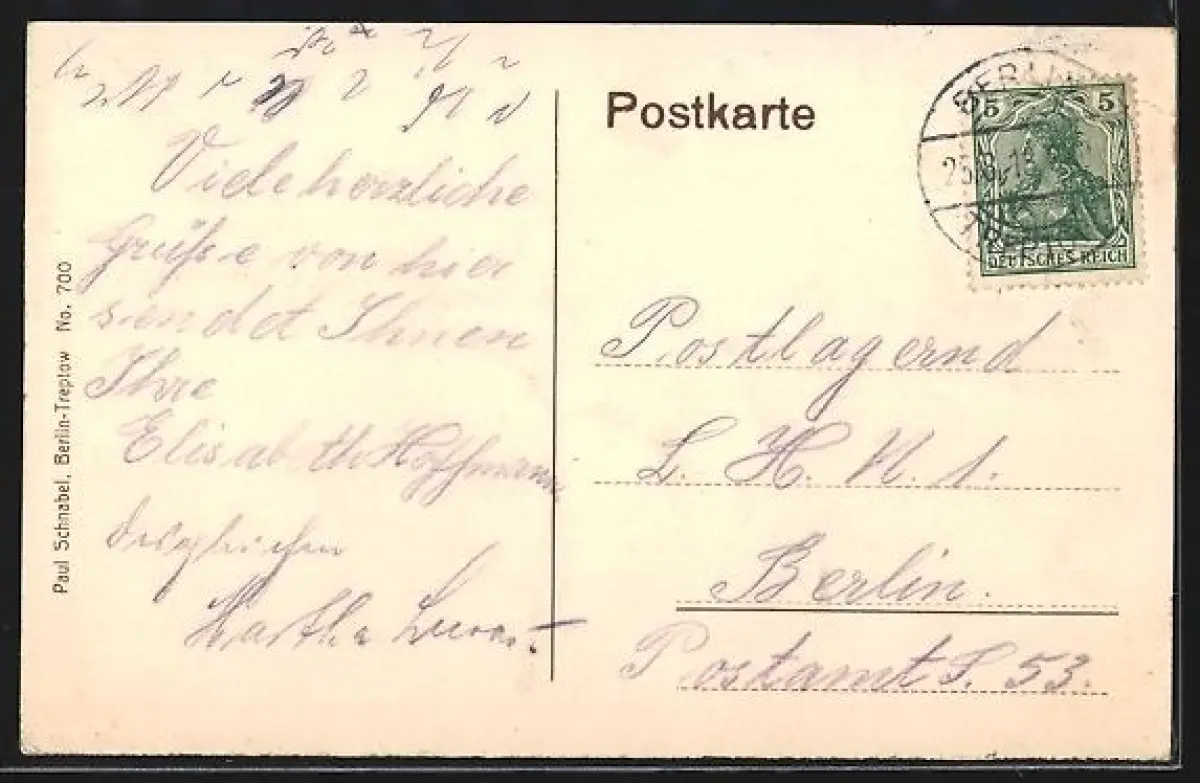 Viele herzliche
Grüße von hier
sendet Ihnen
Ihre
Elisabeth Hoffmann
desgleichen
Postkarte
BERLIN
25.8.13
5 5
DEUTSCHES REICH
Postlagernd
L. H. N. 1.
Berlin.
Postamt S. 53.
Paul Schnabel, Berlin-Treptow No. 700